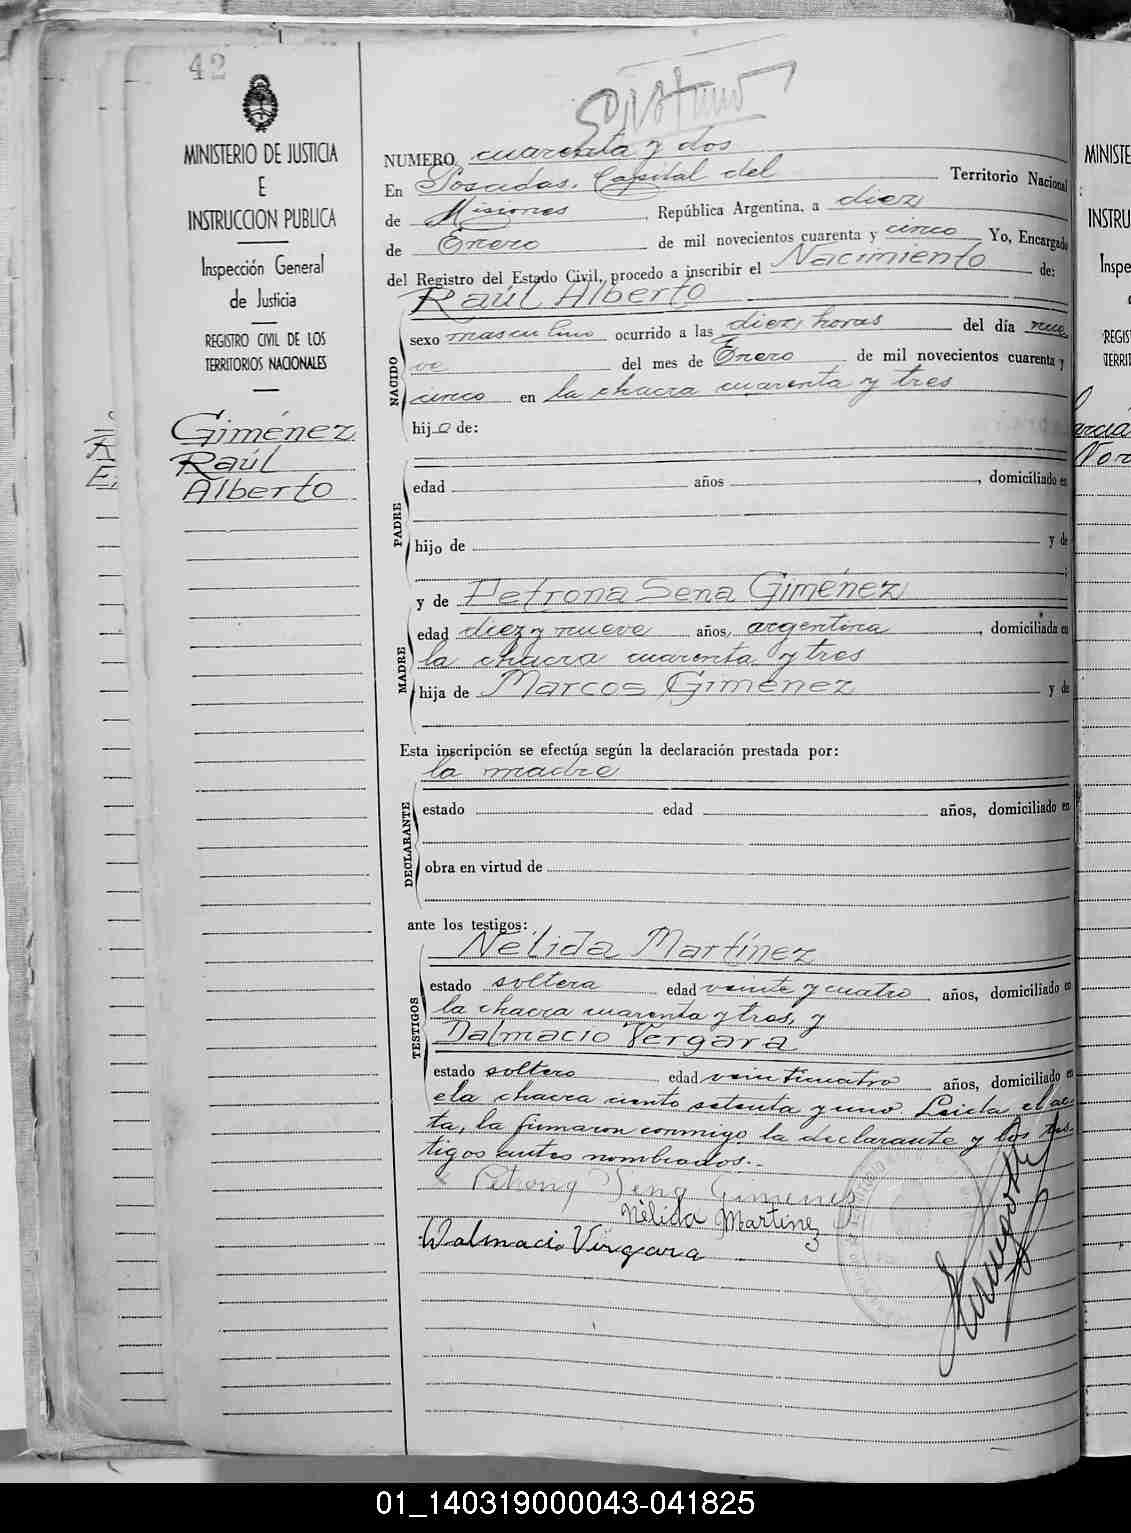 42
MINISTERIO DE JUSTICIA
E
INSTRUCCION PUBLICA
Inspección General
de Justicia
REGISTRO CIVIL DE LOS
TERRITORIOS NACIONALES
Giménez
Raúl
Alberto
NUMERO cuarenta y dos
En Posadas, Capital del Territorio Nacional
de Misiones, República Argentina, a diez
de Enero de mil novecientos cuarenta y cinco Yo, Encargado
del Registro del Estado Civil, procedo a inscribir el Nacimiento de:
Raúl Alberto
NACIDO
sexo masculino ocurrido a las diez horas del día nue
ve del mes de Enero de mil novecientos cuarenta y
cinco en la chacra cuarenta y tres
hijo de:
PADRE
edad años , domiciliado en
hijo de y de
;
y de Petrona Sena Giménez
MADRE
edad diez y nueve años, argentina, domiciliada en
la chacra cuarenta y tres
hija de Marcos Giménez y de
Esta inscripción se efectúa según la declaración prestada por:
la madre
DECLARANTE
estado edad años, domiciliado en
obra en virtud de
ante los testigos:
Nélida Martínez
TESTIGOS
estado soltera edad veinte y cuatro años, domiciliado en
la chacra cuarenta y tres, y
Dalmacio Vergara
estado soltero edad veinticuatro años, domiciliado en
la chacra ciento setenta y uno. Leida el ac-
ta, la firmaron conmigo la declarante y los tes-
tigos antes nombrados.-
Petrona Sena Gimenes
Nélida Martinez
Dalmacio Vergara
MINISTE
INSTRU
Inspe
REGIS
TERRIT
García
Nor
01_140319000043-041825